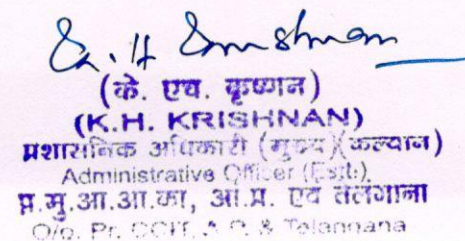 K. H. Krishnan
(के. एच. कृष्णन)
(K.H. KRISHNAN)
प्रशासनिक अधिकारी (मुख्य)(कल्याण)
Administrative Officer (Estt.)
प्र.मु.आ.आ.का, आं.प्र. एवं तेलंगाना
O/o. Pr. CCIT, A.P. & Telangana